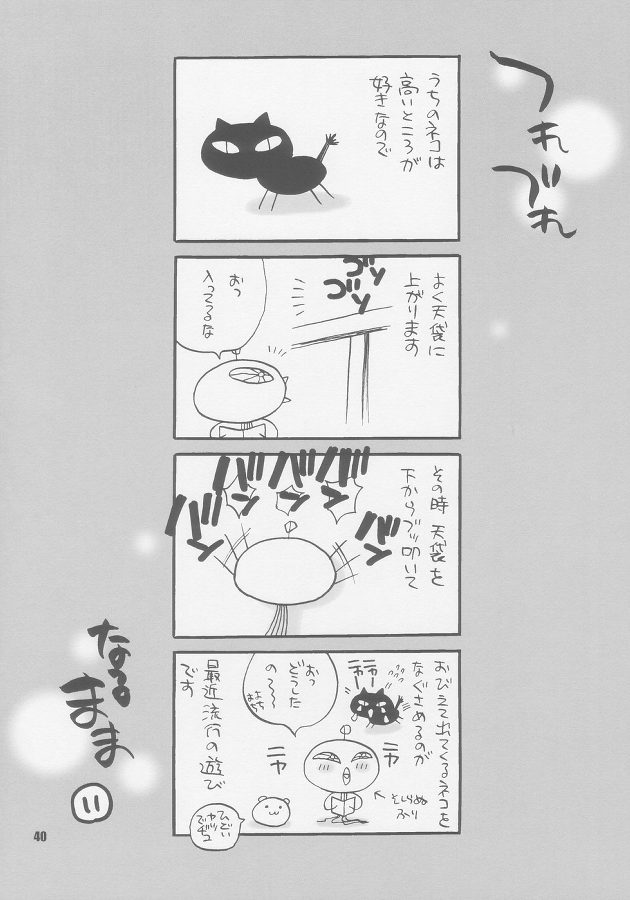 つれ
づれ
うちのネコは
高いところが
好きなので
よく天袋に
上がります
ゴソ
ゴソ
おっ
入ってるな
その時 天袋を
下からブッ叩いて
バン
バン
バン
バン
バン
おびえて出てくるネコを
なぐさめるのが
最近流行の遊び
です
ニャー
ニャー
おっ
どうした
の〜〜
よちよち
ニヤ
ニヤ
そしらぬ
ふり
ひどい
ヤツ
でチュ
なつ。
まま
40